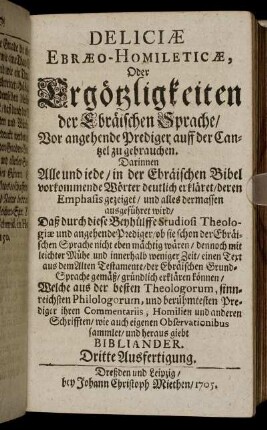 DELICIÆ
EBRÆO-HOMILETICÆ,
Oder
Ergötzligkeiten
der Ebräischen Sprache/
Vor angehende Prediger auff der Can-
tzel zu gebrauchen.
Darinnen
Alle und iede/ in der Ebräischen Bibel
vorkommende Wörter deutlich erkläret/ deren
Emphasis gezeiget/ und alles dermassen
ausgeführet wird/
Daß durch diese Beyhülffe Studiosi Theolo-
giæ und angehende Prediger/ ob sie schon der Ebräi-
schen Sprache nicht eben mächtig wären/ dennoch mit
leichter Mühe und innerhalb weniger Zeit/ einen Text
aus dem Alten Testamente/ der Ebräischen Grund-
Sprache gemäß/ gründlich erklären können/
Welche aus der besten Theologorum, sinn-
reichsten Philologorum, und berühmtesten Pre-
diger ihren Commentariis, Homilien und anderen
Schrifften/ wie auch eigenen Observationibus
sammlet/ und heraus giebt
BIBLIANDER.
Dritte Ausfertigung.
Dreßden und Leipzig/
bey Johann Christoph Miethen/ 1705.